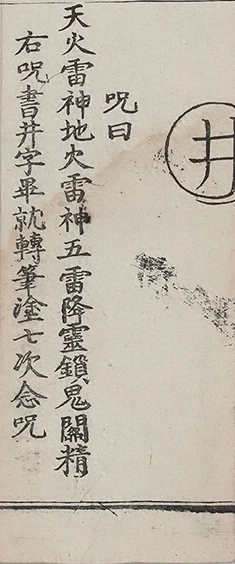 井
咒曰
天火雷神地火雷神五雷降靈鎖鬼關精
右咒書井字畢就轉筆塗七次念咒